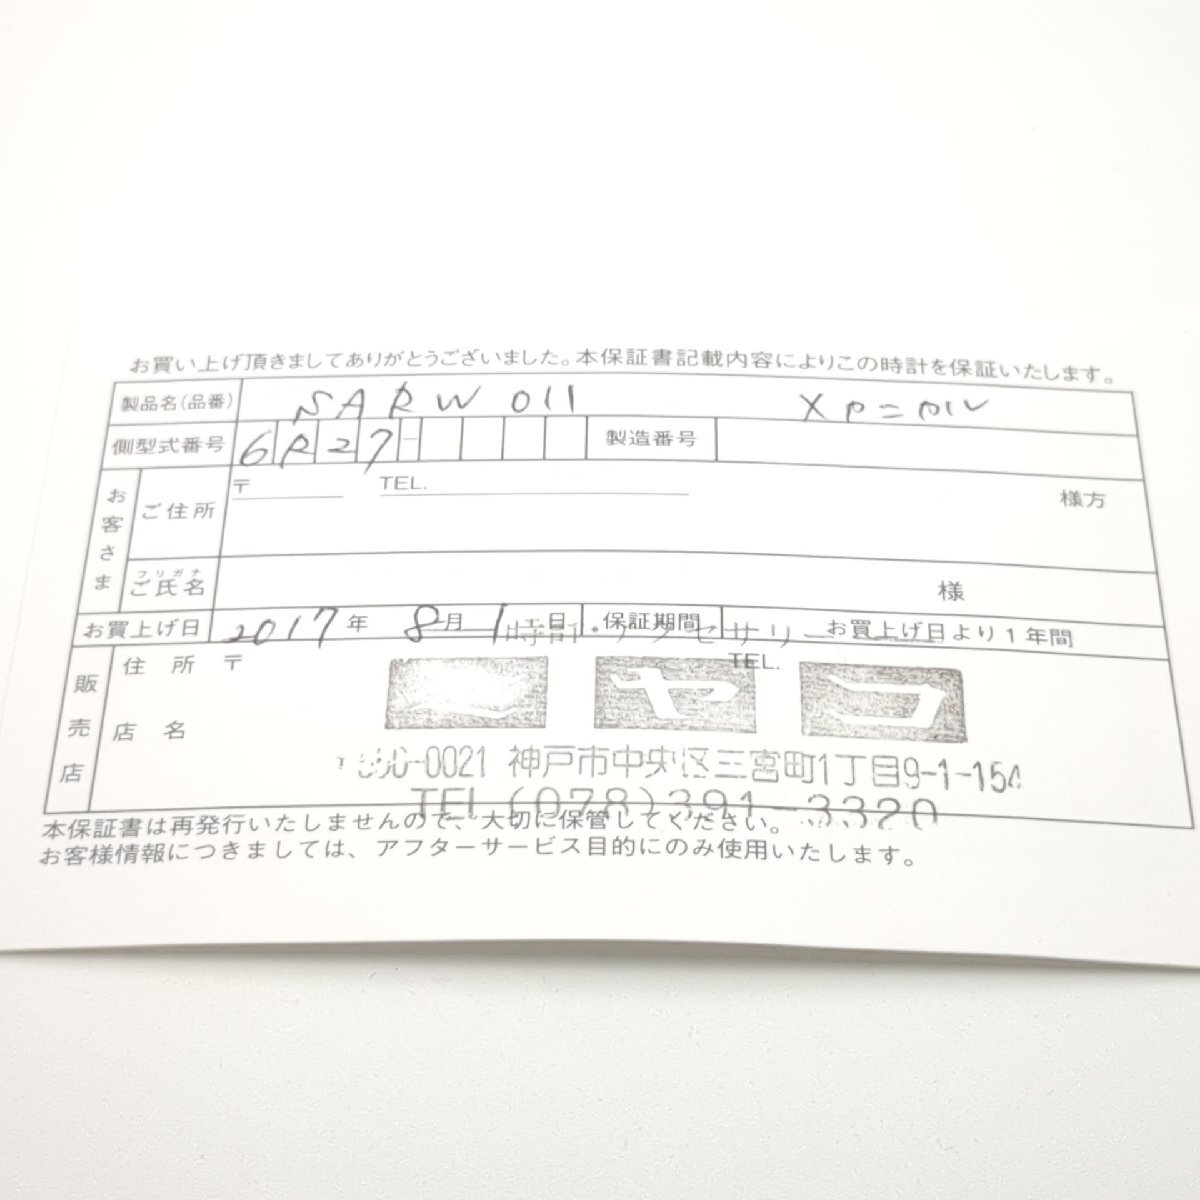 お買い上げ頂きましてありがとうございました。本保証書記載内容によりこの時計を保証いたします。
製品名(品番) SARW 011 メカニカル
側型式番号 6R27- 製造番号
お客さま ご住所 〒 TEL. 様方
フリガナ
ご氏名 様
お買上げ日 2017年 8月 1日 保証期間 お買上げ日より1年間
時計・アクセサリー
販売店 住所 〒 TEL.
店名 ヤコ
0021 神戸市中央区三宮町1丁目9-1-154
TEL(078)391-3320
本保証書は再発行いたしませんので、大切に保管してください。
お客様情報につきましては、アフターサービス目的にのみ使用いたします。